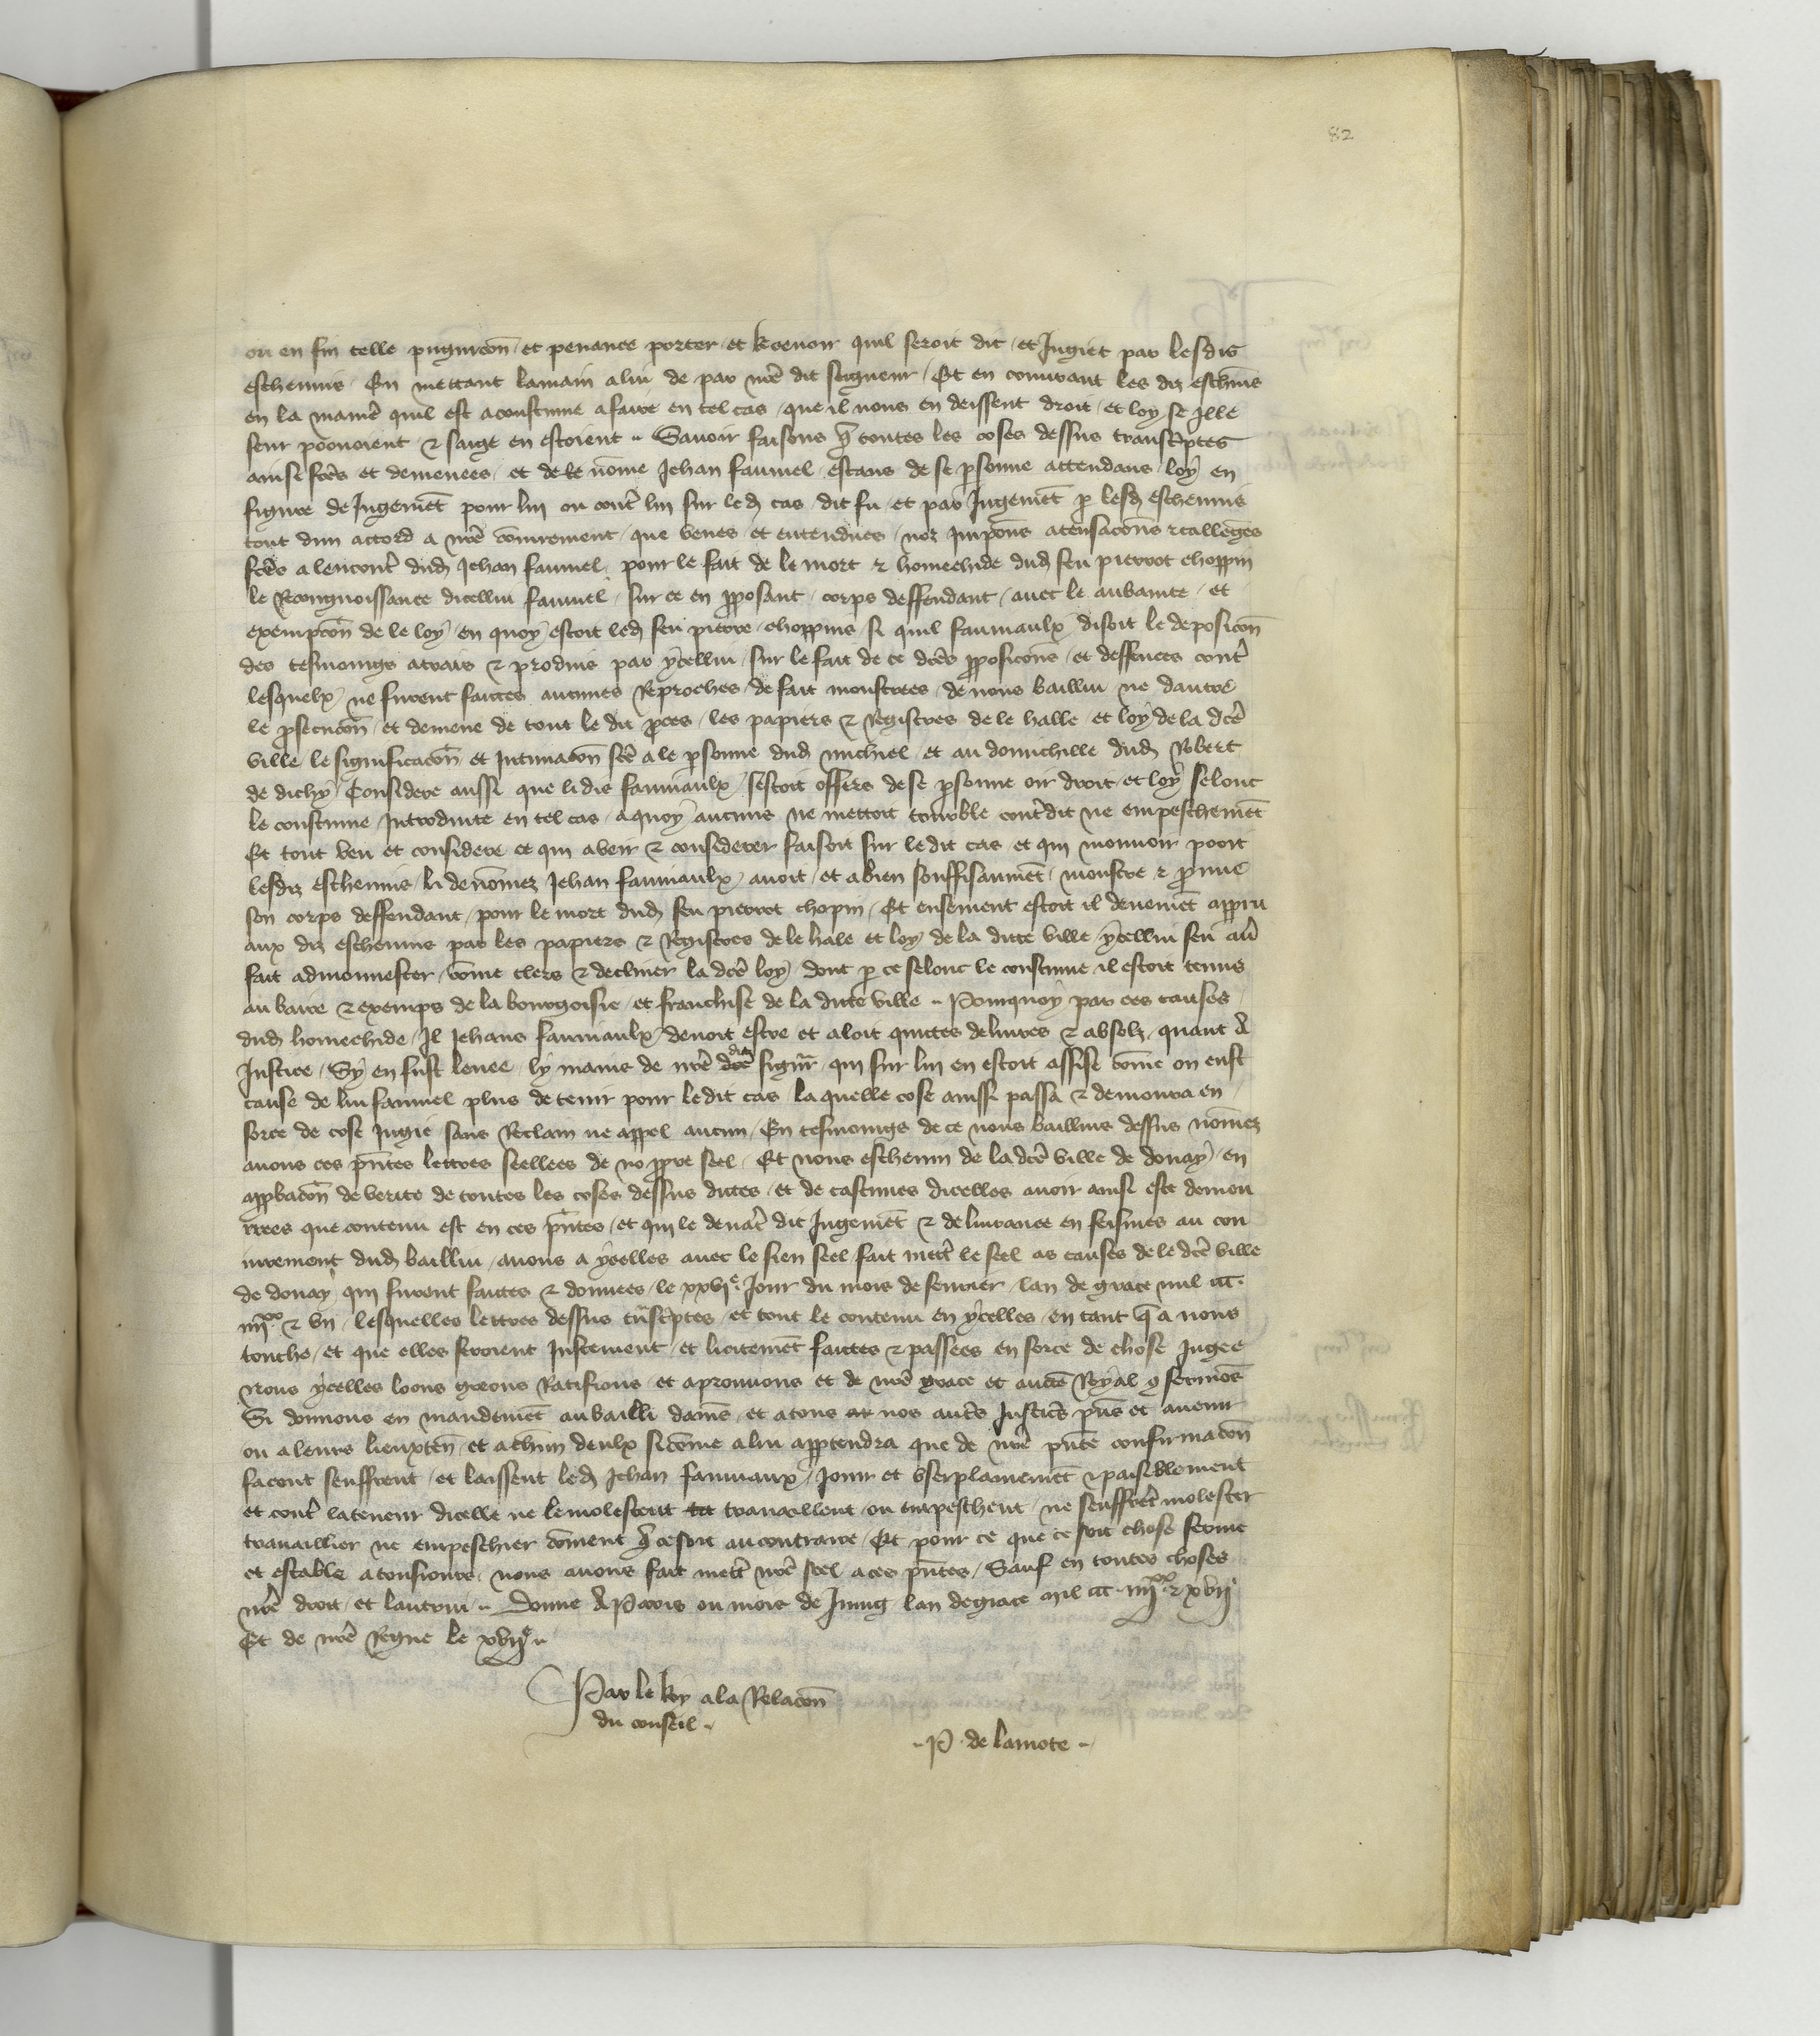 82
ou en fin telle pugnicōn et penance porter et Recevoir quil seroit dit et Jugiet par lesdis
eschevins En mettant lamain a lui de par nrē dit seigneur Et en conjurant les diz eschevīs
en la manīe quil est acoustume a faire en tel cas que il nous en deissent droit et loy se Il le
seur poouoient & saige en estoient Savoir faisons q̄ toutes les coses dessus transcriptes
ainsi fcēs et demenees et de le nōme Jehan fauvel estans de se psonne attendans loy en
figure de Jugemēt pour lui ou contē lui sur led cas dit fu et par Jugemēt p lesd eschevins
tout dun accord a nrē conjurement que veues et entendues noz Imposōns acensacōns & calleges
fcēs a lencontē dud Jehan fauvel pour le fait de le mort & homechide dud feu pierrot choppin
le Recongnoissance dicellui fauvel sur ce en pposant corps deffendant avec le aubainte et
exempcōn de le loy en quoy estoit led feu pierre choppins si quil fauviaulx disoit le deposicōn
des tesmoings atrais & produis par ycellui sur le fait de ce dcēs pposicōns et deffences contē
lesquelx ne furent faictes aucunes Reproches de fait monstrees de nous baillui ne dautre
le psecucōn et demene de tout le dit pces les papiers & Registres de le halle et loy de la dcē
ville le significacōn et Intimacōn fcē a le psonne dud michiel et au domichille dud Robert
de dichy Considere aussi que li dis fauviaulx sestoit offers de se psonne oir droit et loy selonc
le coustume Introduite en tel cas a quoy aucuns ne mettoit tourble contēdit ne empeschemēt
Et tout veu et considere ce qui a veir & considerer faisoit sur le dit cas et qui mouvoir pooit
lesdiz eschevins li denōmez Jehan fauviaulx avoit et a bien souffisaumēt monstre & prouve
son corps deffendant pour le mort dud feu pierrot chopin Et ensement estoit il deuemēt apparu
aux diz eschevins par les papiers & Registres de le hale et loy de la dicte ville ycellui feu avē
fait admonnester cōme clers & decliner la dcē loy dont p ce selonc le coustume il estoit tenus
aubaine & exemps de la bourgoisie et franchise de la dicte ville Pourquoy par ces causes
dud homechide Il Jehans fauviaulx devoit estre et aloit quittes delivres & absolz quant A
Justice Sy en fust levee ly mains de nrē dit sign̄r qui sur lui en estoit assise cōme on eust
cause de lui fauvel plus detenir pour ledit cas la quelle cose aussi passa & demoura en
force de cose Jugie sans Reclam ne appel aucun En tesmoings de ce nous baillius dessus nōmez
avons ces pn̄tes lettres seellees de no ppre seel Et nous eschevin de la dcē ville de douay en
appbacōn de verite de toutes les coses dessus dictes et de cascunes dicelles avoir ainsi este demou
rees que contenu est en ces pn̄tes et qui le devāt dit Jugemēt & delivrance en feismes au con
jurement dud baillui avons a ycelles avec le sien seel fait mettē le seel as causes de le dcē ville
de douay qui furent faictes & donnees le xxviᵉ Jour du mois de fevrier lan de grace mil ccc
iiijˣˣ & vii lesquelles lettres dessus tn̄scriptes et tout le contenu en ycelles en tant q̄ a nous
touche et que elles seroient Justement et licitemēt faictes & passees en force de chose Jugee
Nous ycelles loons greons Ratifions et aprouvons et de nrē grace et auctē Royal 9fermōs
Si donnons en mandemēt au bailli damīs et a tous nos autēs Justicīs pn̄s et avenir
ou a leurs lieuxten̄ et a chūn deulx si cōme a lui apptendra que de nrē pn̄te confirmacōn
facent seuffrent et laissent led Jehan fauviaux Jouir et user plainemēt & paisiblement
et contē la teneur dicelle ne le molestent travaillent ou empeschent ne seuffrēt molester
travaillier ne empeschier cōment q̄ ce soit au contraire Et pour ce que ce soit chose ferme
et estable a tousiours nous avons fait mettē nrē seel a ces pn̄tes Sauf en toutes choses
nrē droit et lautrui Donne A Paris ou mois de Juing lan de grace mil ccc iiijˣˣ & xvij
Et de nrē Regne le xvijᵉ
Par le Roy a la Relacōn
du conseil
P. de lamote